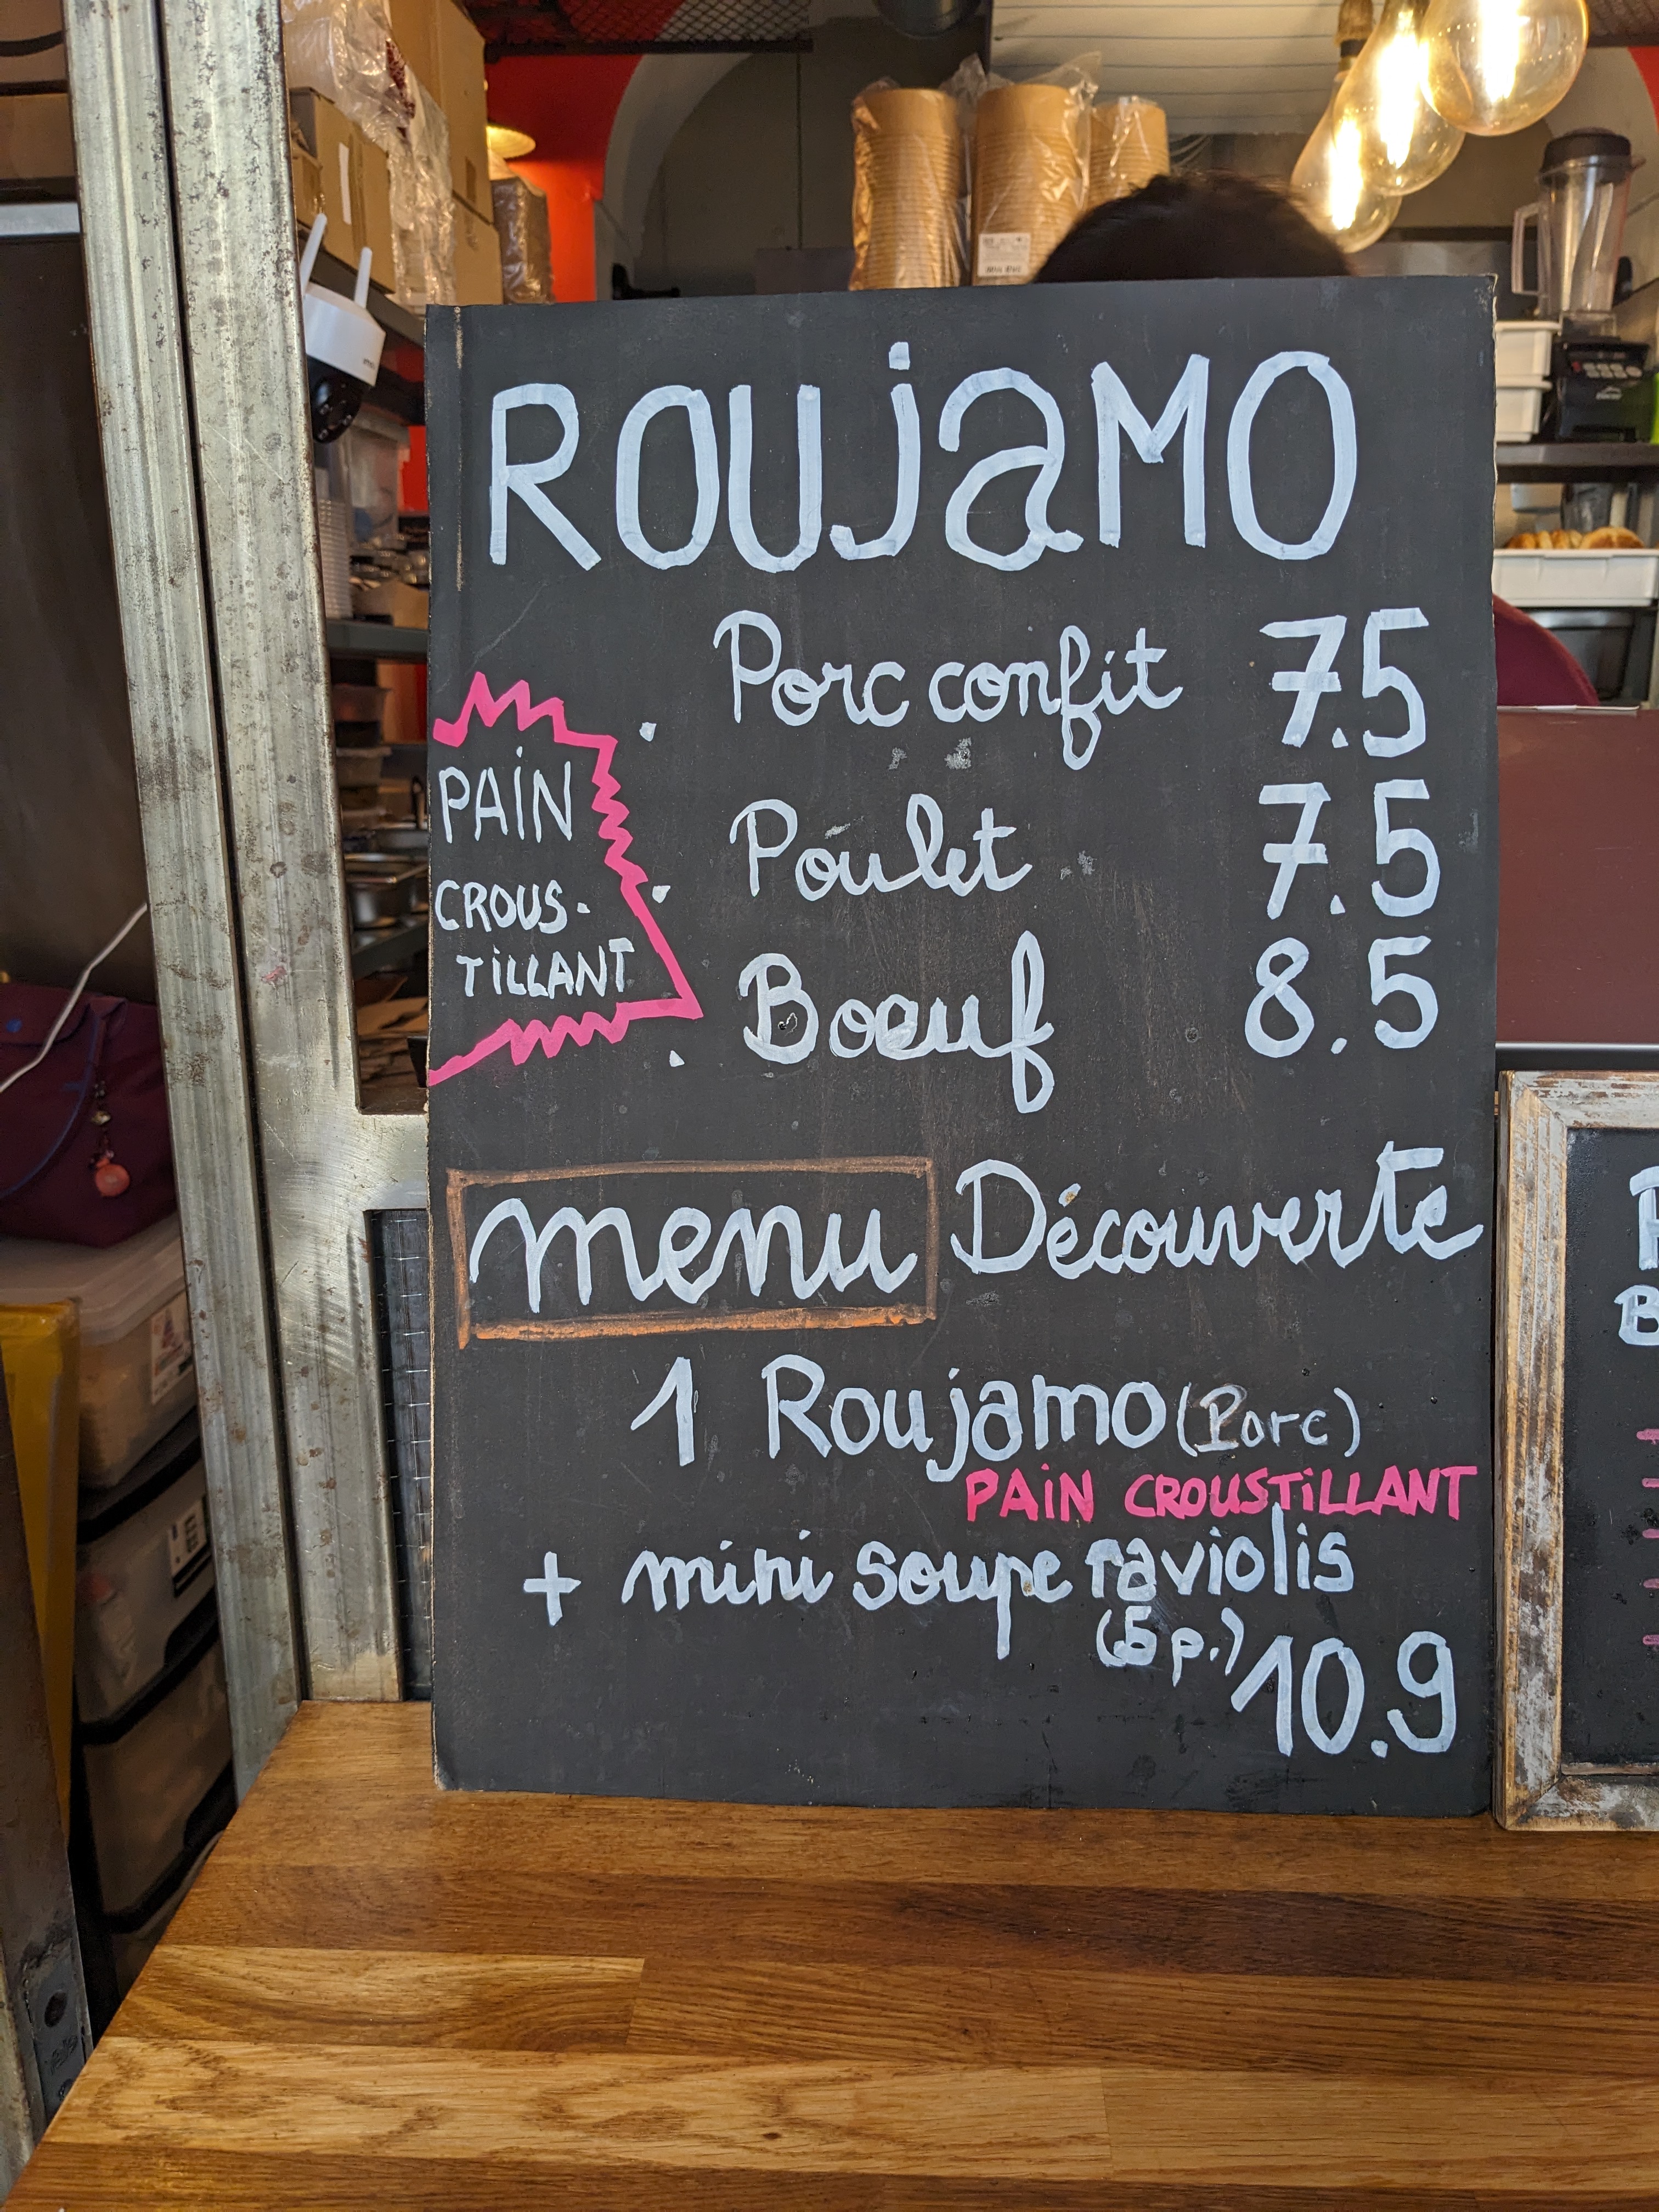 ROUJAMO
Porc confit 7.5
PAIN
CROUS-
TILLANT
. Poulet 7.5
. Boeuf 8.5
menu Découverte
1 Roujamo (Porc)
PAIN CROUSTILLANT
+ mini soupe raviolis
(5 p.)
10.9
B